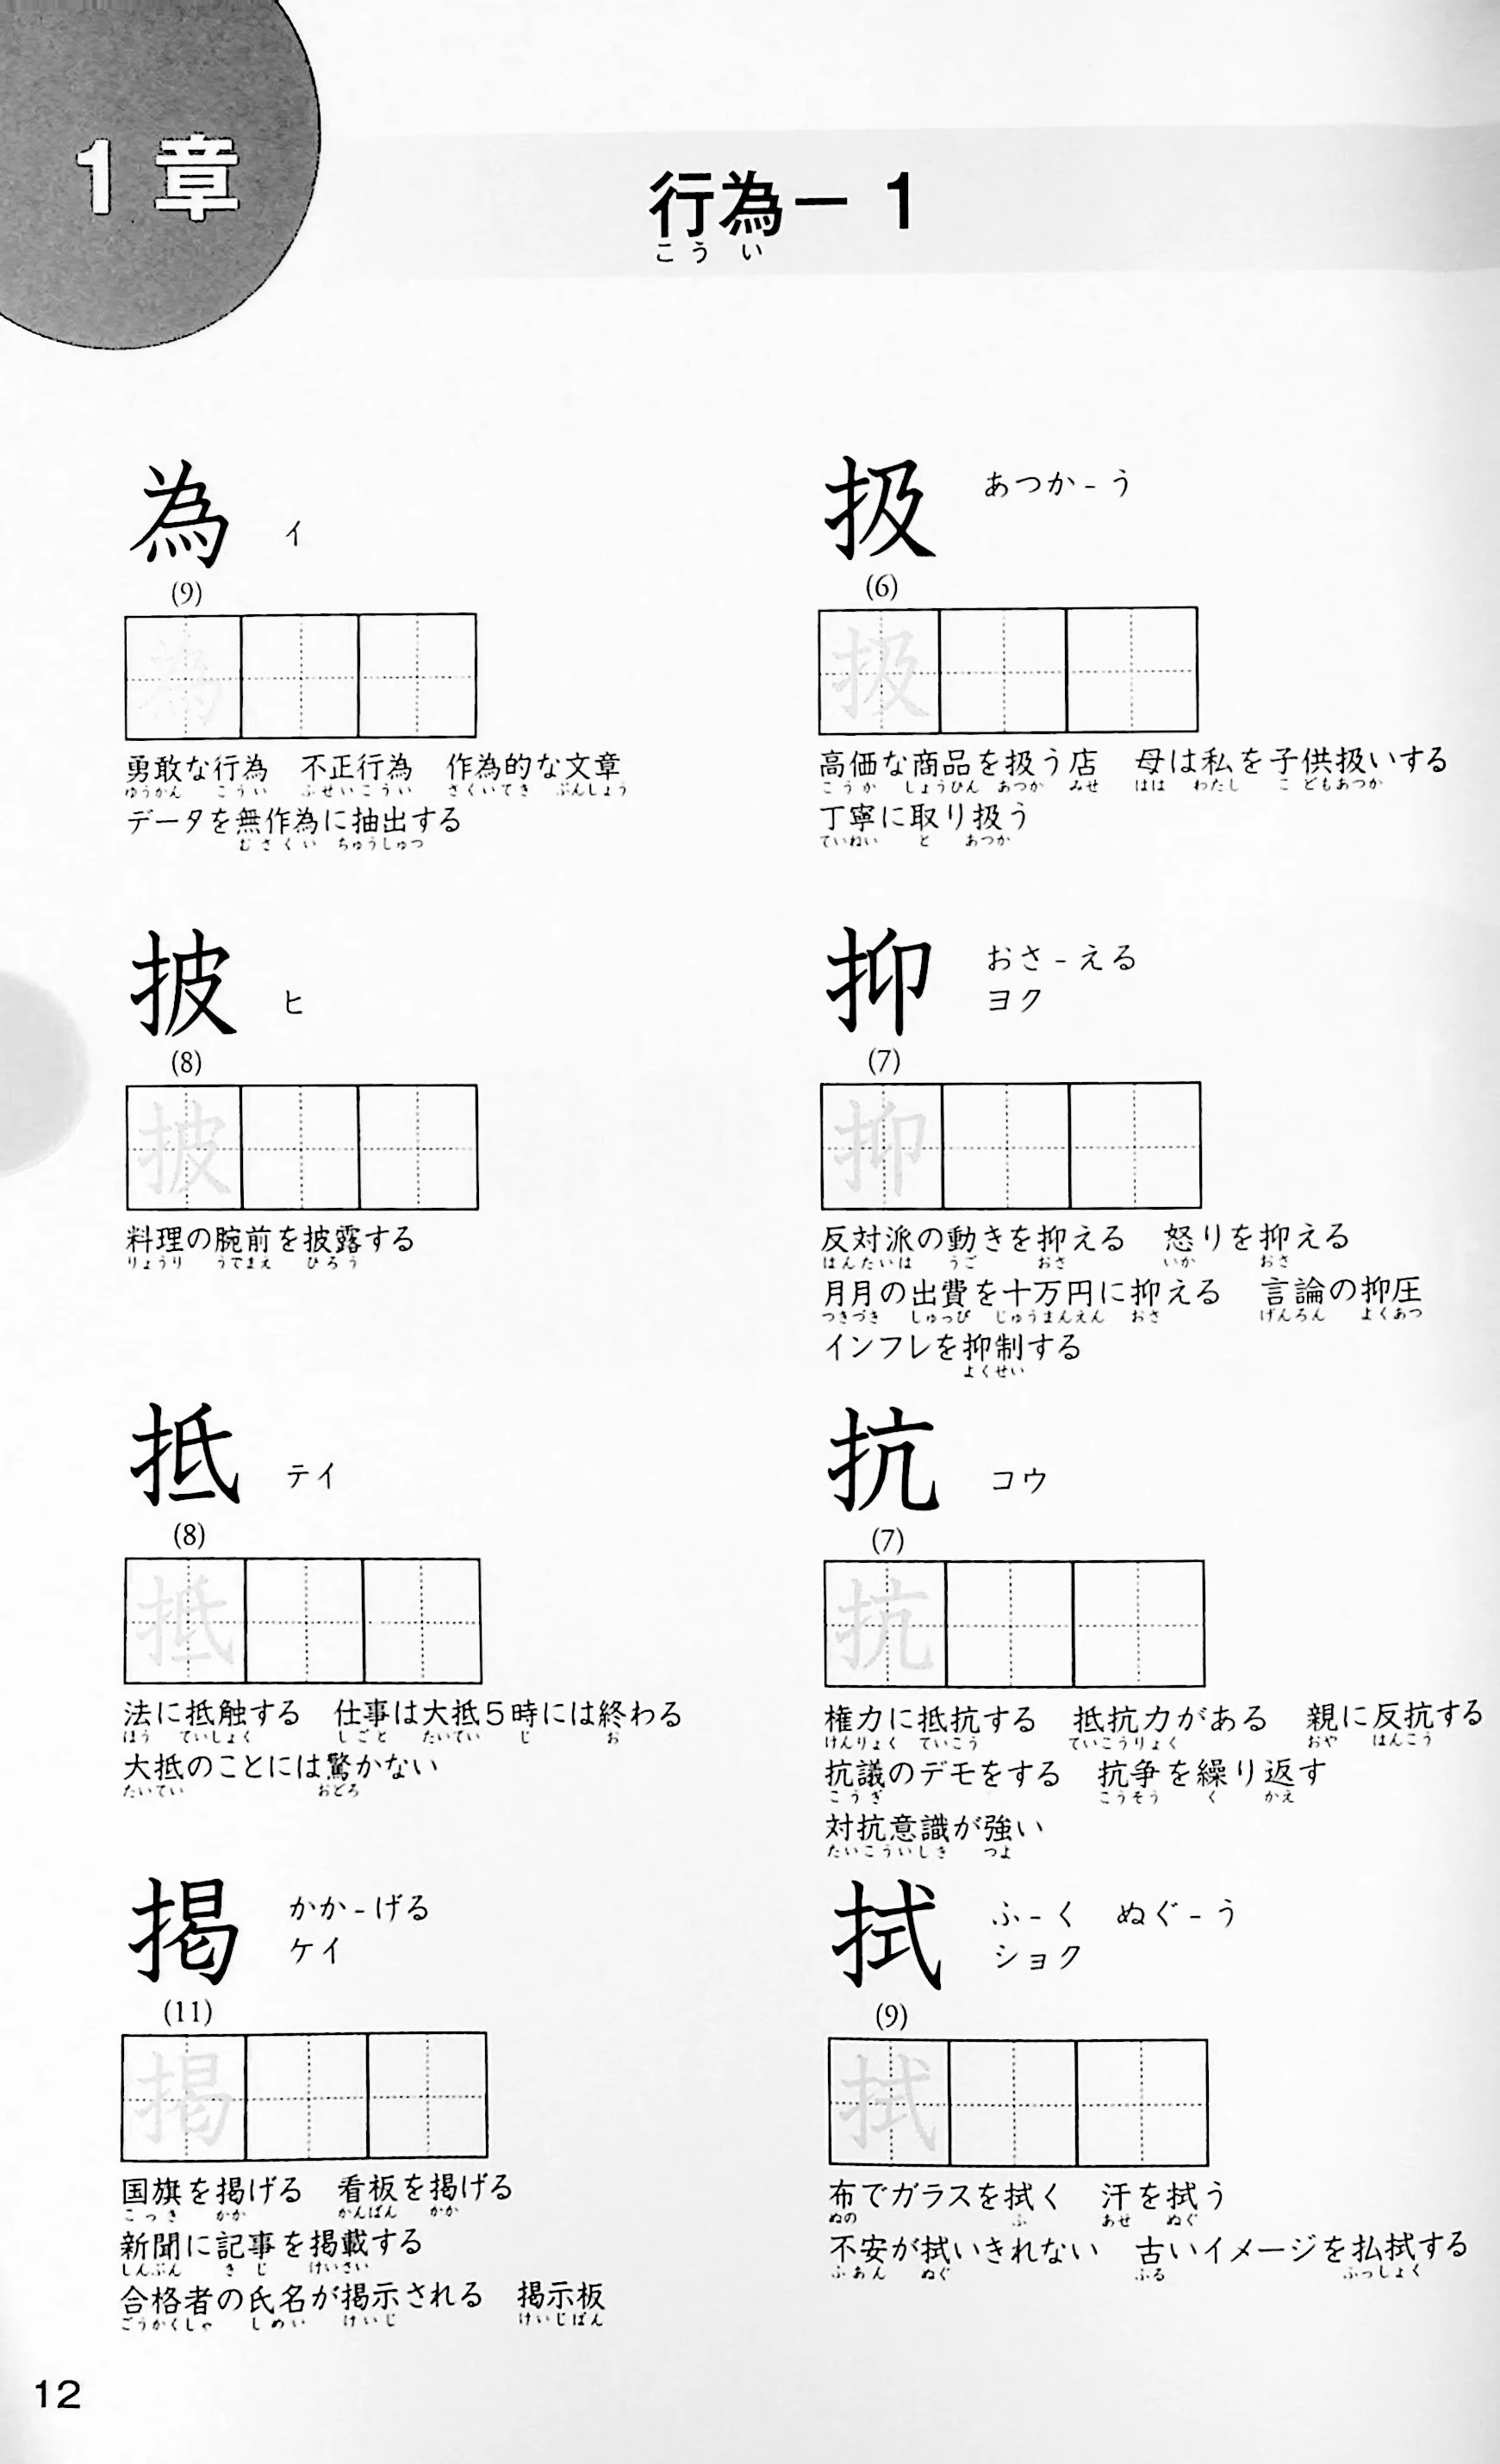 1章
行為－1
こうい
為 イ
(9)
為
勇敢な行為　不正行為　作為的な文章
ゆうかん　こうい　ふせいこうい　さくいてき　ぶんしょう
データを無作為に抽出する
むさくい　ちゅうしゅつ
扱 あつか-う
(6)
扱
高価な商品を扱う店　母は私を子供扱いする
こうか　しょうひん　あつか　みせ　はは　わたし　こどもあつか
丁寧に取り扱う
ていねい　と　あつか
披 ヒ
(8)
披
料理の腕前を披露する
りょうり　うでまえ　ひろう
抑 おさ-える
ヨク
(7)
抑
反対派の動きを抑える　怒りを抑える
はんたいは　うご　おさ　いか　おさ
月月の出費を十万円に抑える　言論の抑圧
つきづき　しゅっぴ　じゅうまんえん　おさ　げんろん　よくあつ
インフレを抑制する
よくせい
抵 テイ
(8)
抵
法に抵触する　仕事は大抵5時には終わる
ほう　ていしょく　しごと　たいてい　じ　お
大抵のことには驚かない
たいてい　おどろ
抗 コウ
(7)
抗
権力に抵抗する　抵抗力がある　親に反抗する
けんりょく　ていこう　ていこうりょく　おや　はんこう
抗議のデモをする　抗争を繰り返す
こうぎ　こうそう　く　かえ
対抗意識が強い
たいこういしき　つよ
掲 かか-げる
ケイ
(11)
掲
国旗を掲げる　看板を掲げる
こっき　かか　かんばん　かか
新聞に記事を掲載する
しんぶん　きじ　けいさい
合格者の氏名が掲示される　掲示板
ごうかくしゃ　しめい　けいじ　けいじばん
拭 ふ-く　ぬぐ-う
ショク
(9)
拭
布でガラスを拭く　汗を拭う
ぬの　ふ　あせ　ぬぐ
不安が拭いきれない　古いイメージを払拭する
ふあん　ぬぐ　ふる　ふっしょく
12